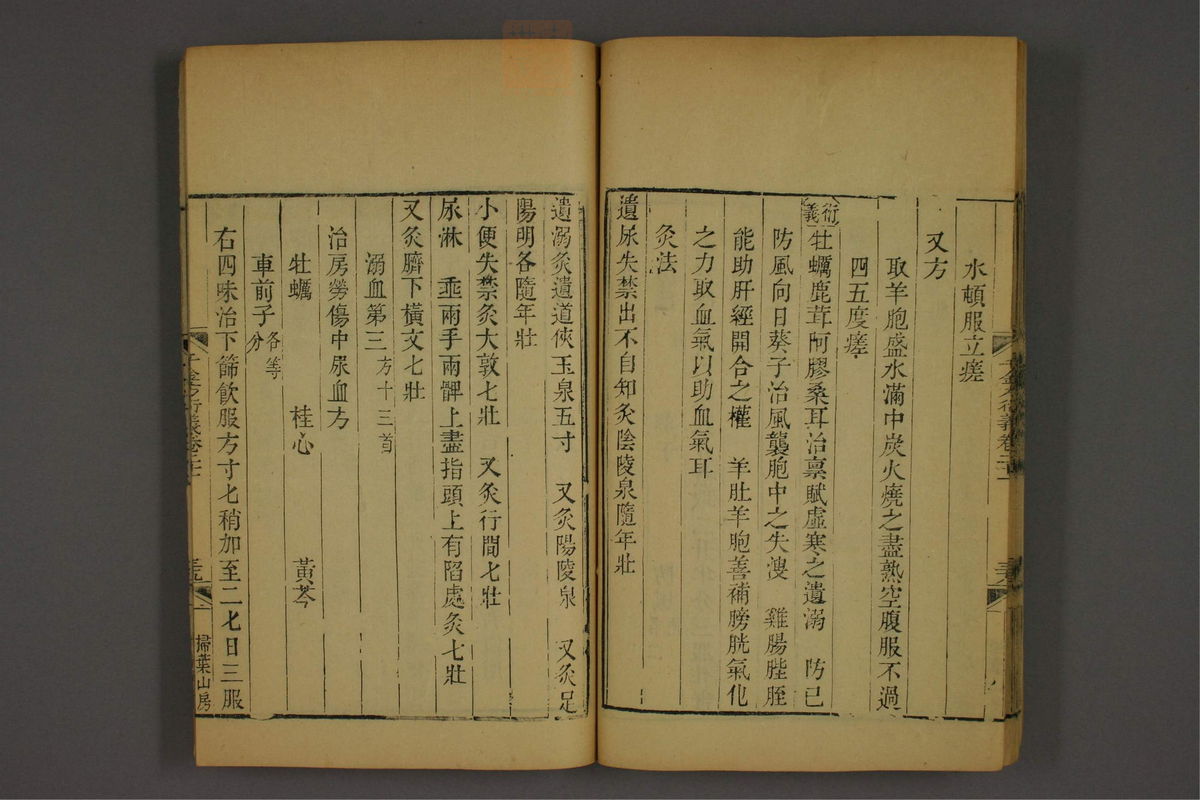 水頓服立瘥
又方
取羊胞盛水滿中炭火燒之盡熟空腹服不過
四五度瘥
衍義 牡蠣鹿茸阿膠桑耳治禀賦虛寒之遺溺 防己
防風向日葵子治風襲胞中之失溲 雞腸脞胵
能助肝經開合之權 羊肚羊胞善補膀胱氣化
之力取血氣以助血氣耳
灸法
遺尿失禁出不自知灸陰陵泉隨年壯
遺溺灸遺道俠玉泉五寸 又灸陽陵泉 又灸足
陽明各隨年壯
小便失禁灸大敦七壯 又灸行間七壯
尿淋 垂兩手兩髀上盡指頭上有陷處灸七壯
又灸臍下橫文七壯
溺血第三方十三首
治房勞傷中尿血方
牡蠣 桂心 黃芩
車前子各等分
右四味治下篩飲服方寸匕稍加至二匕日三服
掃葉山房